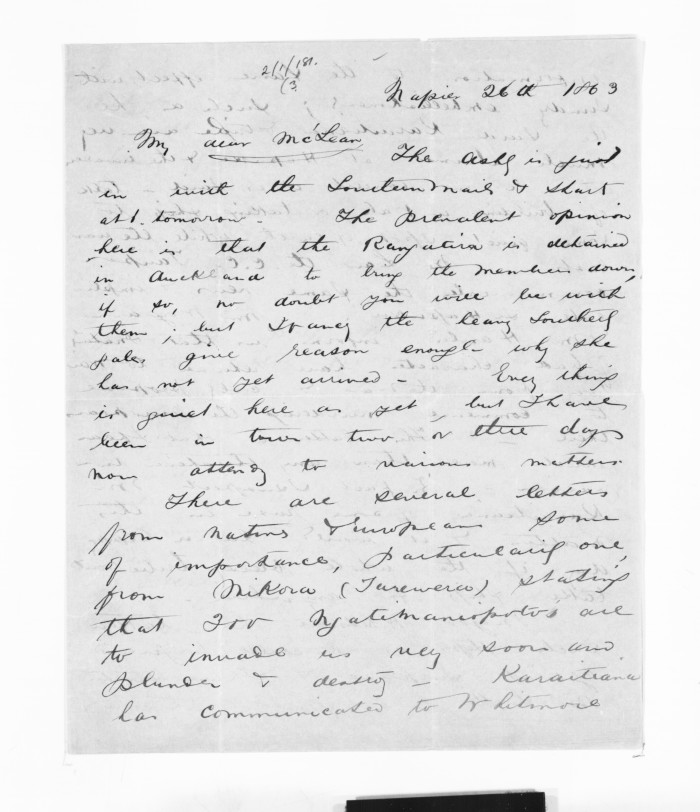 Napier 26th 1863
My dear McLean
The Ashy is just
in with the Southern mails & start
at 1. tomorrow. The prevalent opinion
here is that the Rangatira is detained
in Auckland to bring the members down,
if so, no doubt you will be with
them; but I fancy the heavy Southerly
gales give reason enough why she
has not yet arrived - Every thing
is quiet here as yet, but I have
been in town two or three days
now attendg to various matters.
There are several letters
from natives & Europeans some
of importance, particularly one,
from Nikora (Tarewera) stating
that 200 Ngatimaniopotos are
to invade us very soon and
plunder & destroy - Karaitiana
has communicated to Whitmore